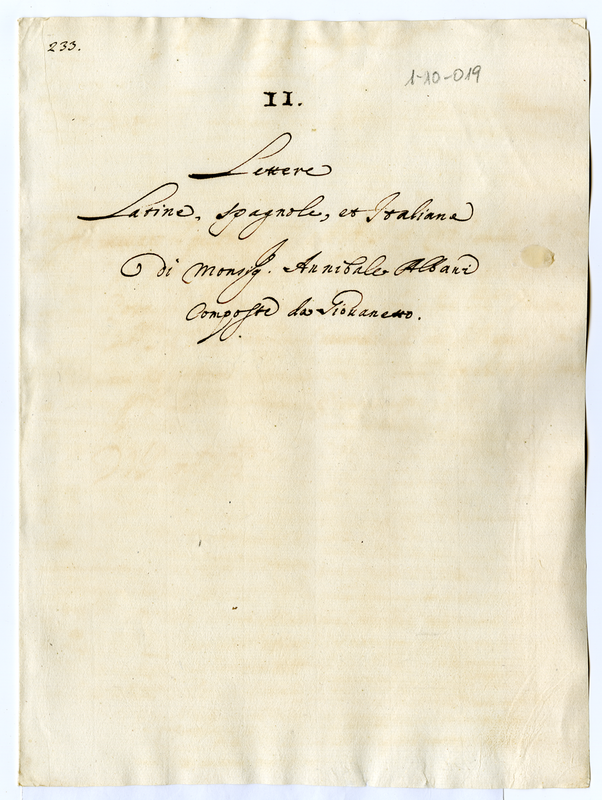 233.
1-10-019
II.
Lettere
Latine, spagnole, et Italiane
Di Monsig.r Annibale Albani
Composte da Giovanetto.